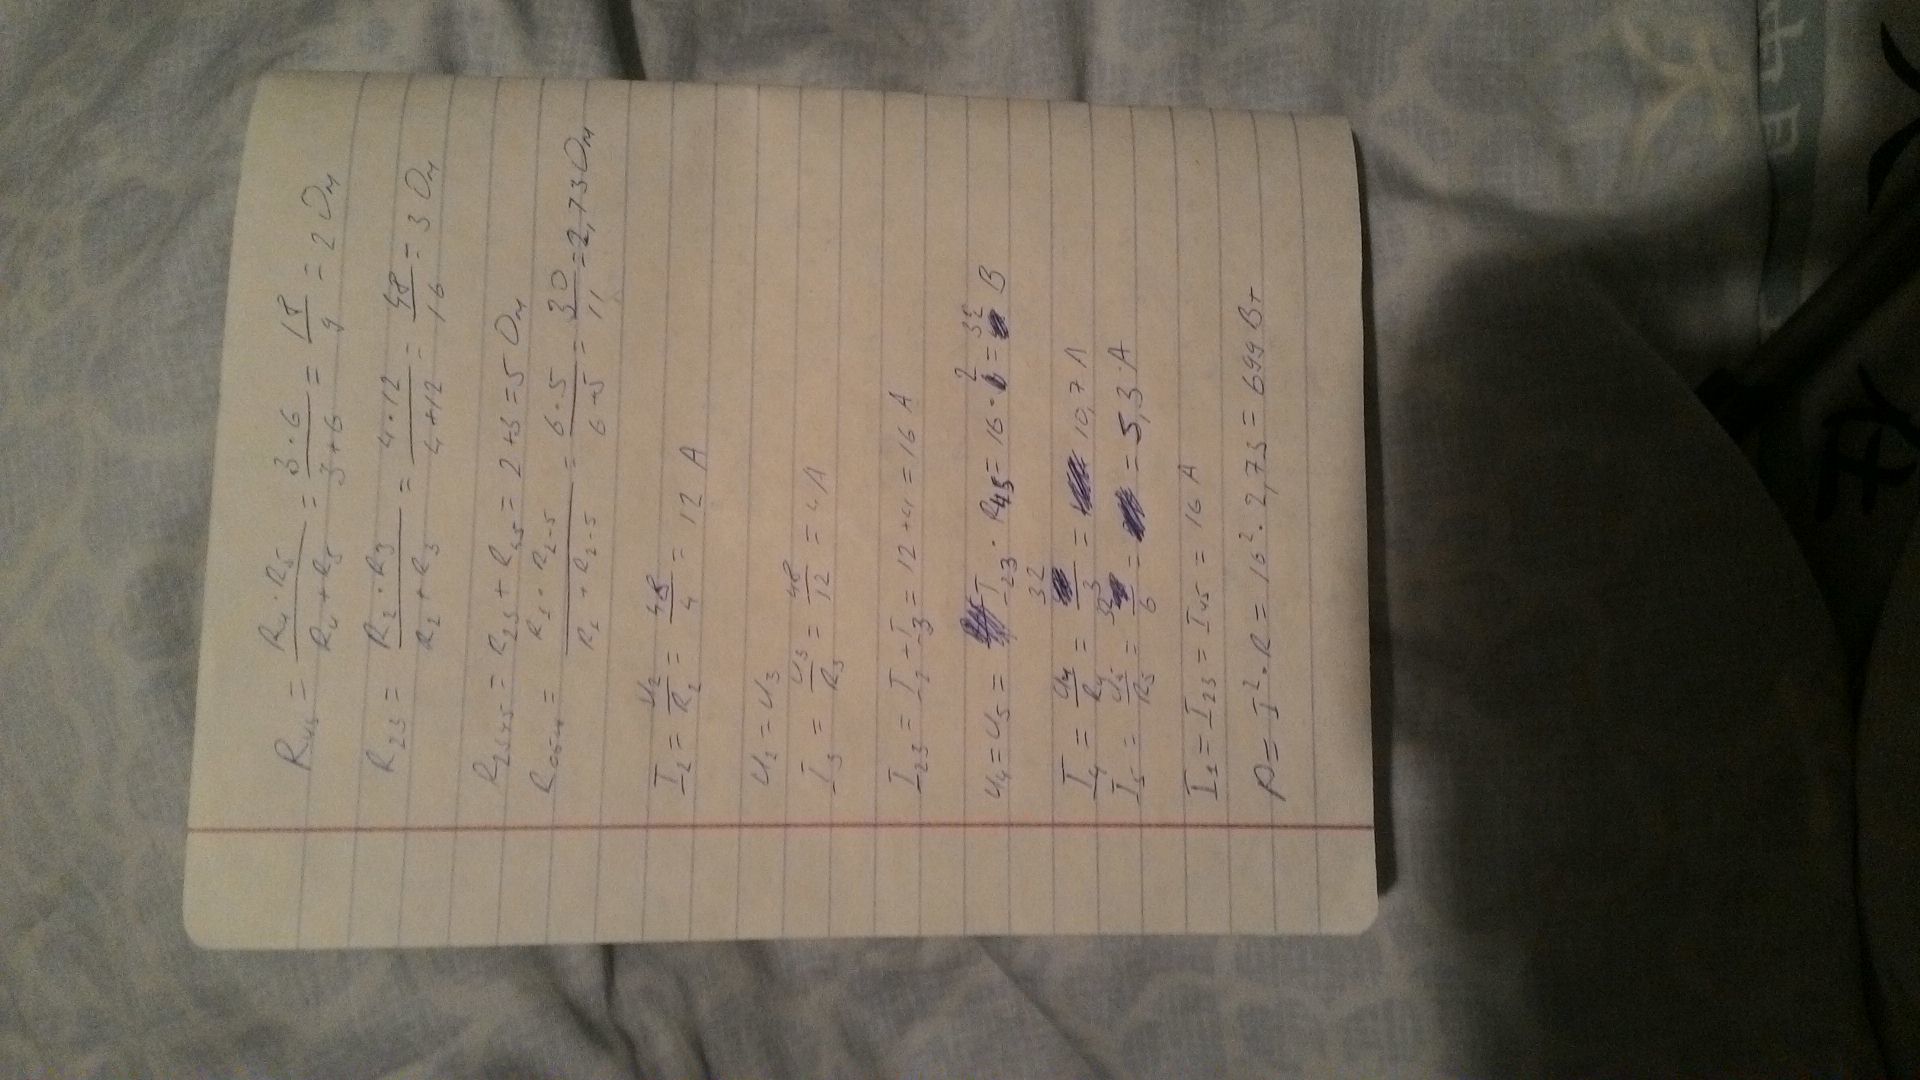 R45 = R4·R5 / R4+R5 = 3·6 / 3+6 = 18 / 9 = 2 Ом
R23 = R2·R3 / R2+R3 = 4·12 / 4+12 = 48 / 16 = 3 Ом
R2345 = R23+R45 = 2+3=5 Ом
Rобщ = R1·R2-5 / R1+R2-5 = 6·5 / 6+5 = 30 / 11 = 2,73 Ом
I2 = U2 / R2 = 48 / 4 = 12 А
U2 = U3
I3 = U3 / R3 = 48 / 12 = 4 А
I23 = I2 + I3 = 12+4 = 16 А
U4=U5 = I23 · R45 = 16·2 = 32 В
I4 = U4 / R4 = 32 / 3 = 10,7 А
I5 = U5 / R5 = 32 / 6 = 5,3 А
I1 = I23 = I45 = 16 А
P = I²·R = 16²·2,73 = 699 Вт